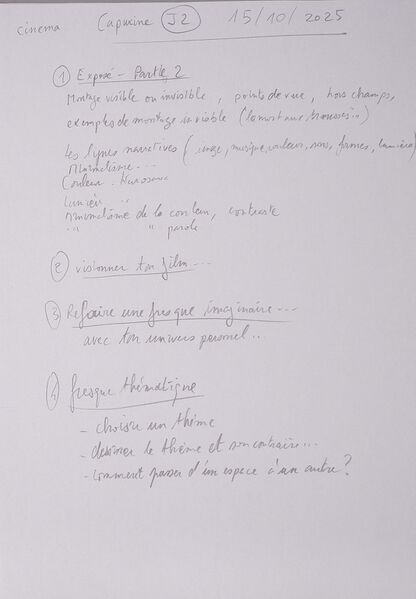 cinema Capucine J2 15/10/2025
① Exposé - Partie 2
Montage visible ou invisible, points de vue, hors champs,
exemples de montage invisible (la mort aux trousses..)
Les lignes narratives (image, musique, couleur, sons, formes, lumière)
Minimalisme...
Couleur : Kurosawa
Lumière "
Minimalisme de la couleur, contraste
" " parole
② visionner ton film...
③ Refaire une fresque imaginaire...
avec ton univers personnel..
④ fresque thématique
- choisir un thème
- dessiner le thème et son contraire...
- comment passer d'un espace à un autre?